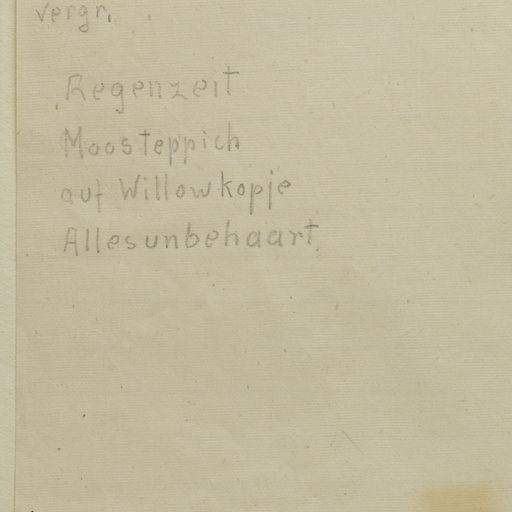 vergr.
Regenzeit
Moosteppich
auf Willowkopje
Alles unbehaart